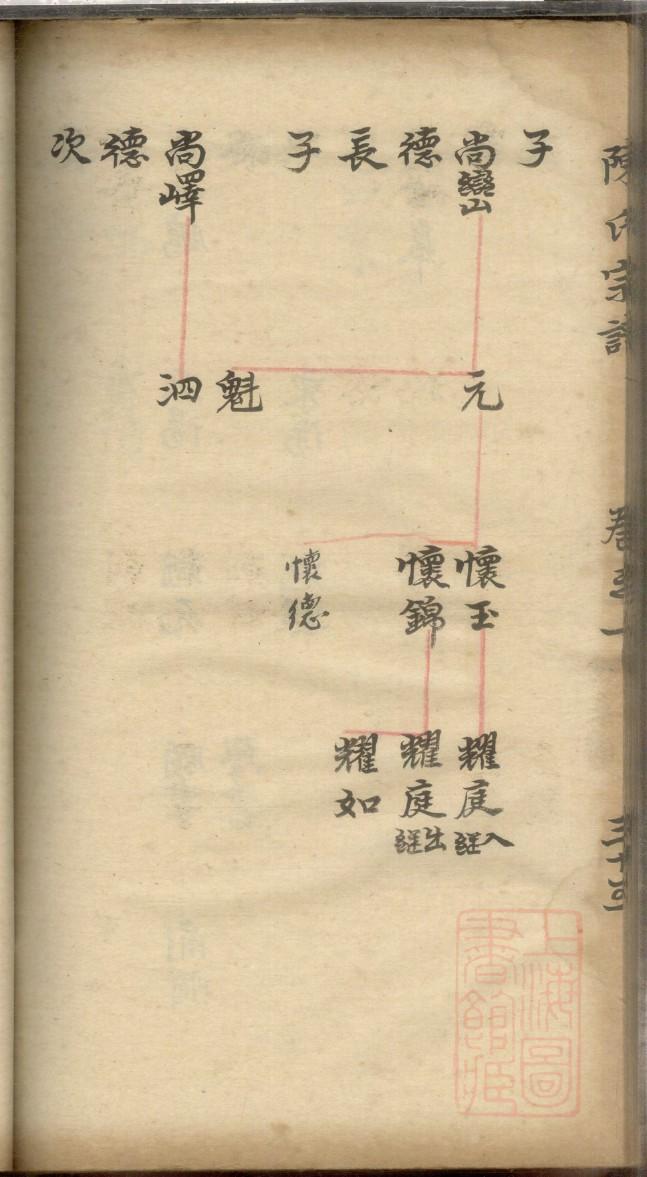 陳氏宗譜
卷三十
子
尚巒
元
懷玉
耀庭
入繼
德
懷錦
耀庭
出繼
長
耀如
子
懷德
魁
尚嶧
泗
德
次
上海圖書館藏